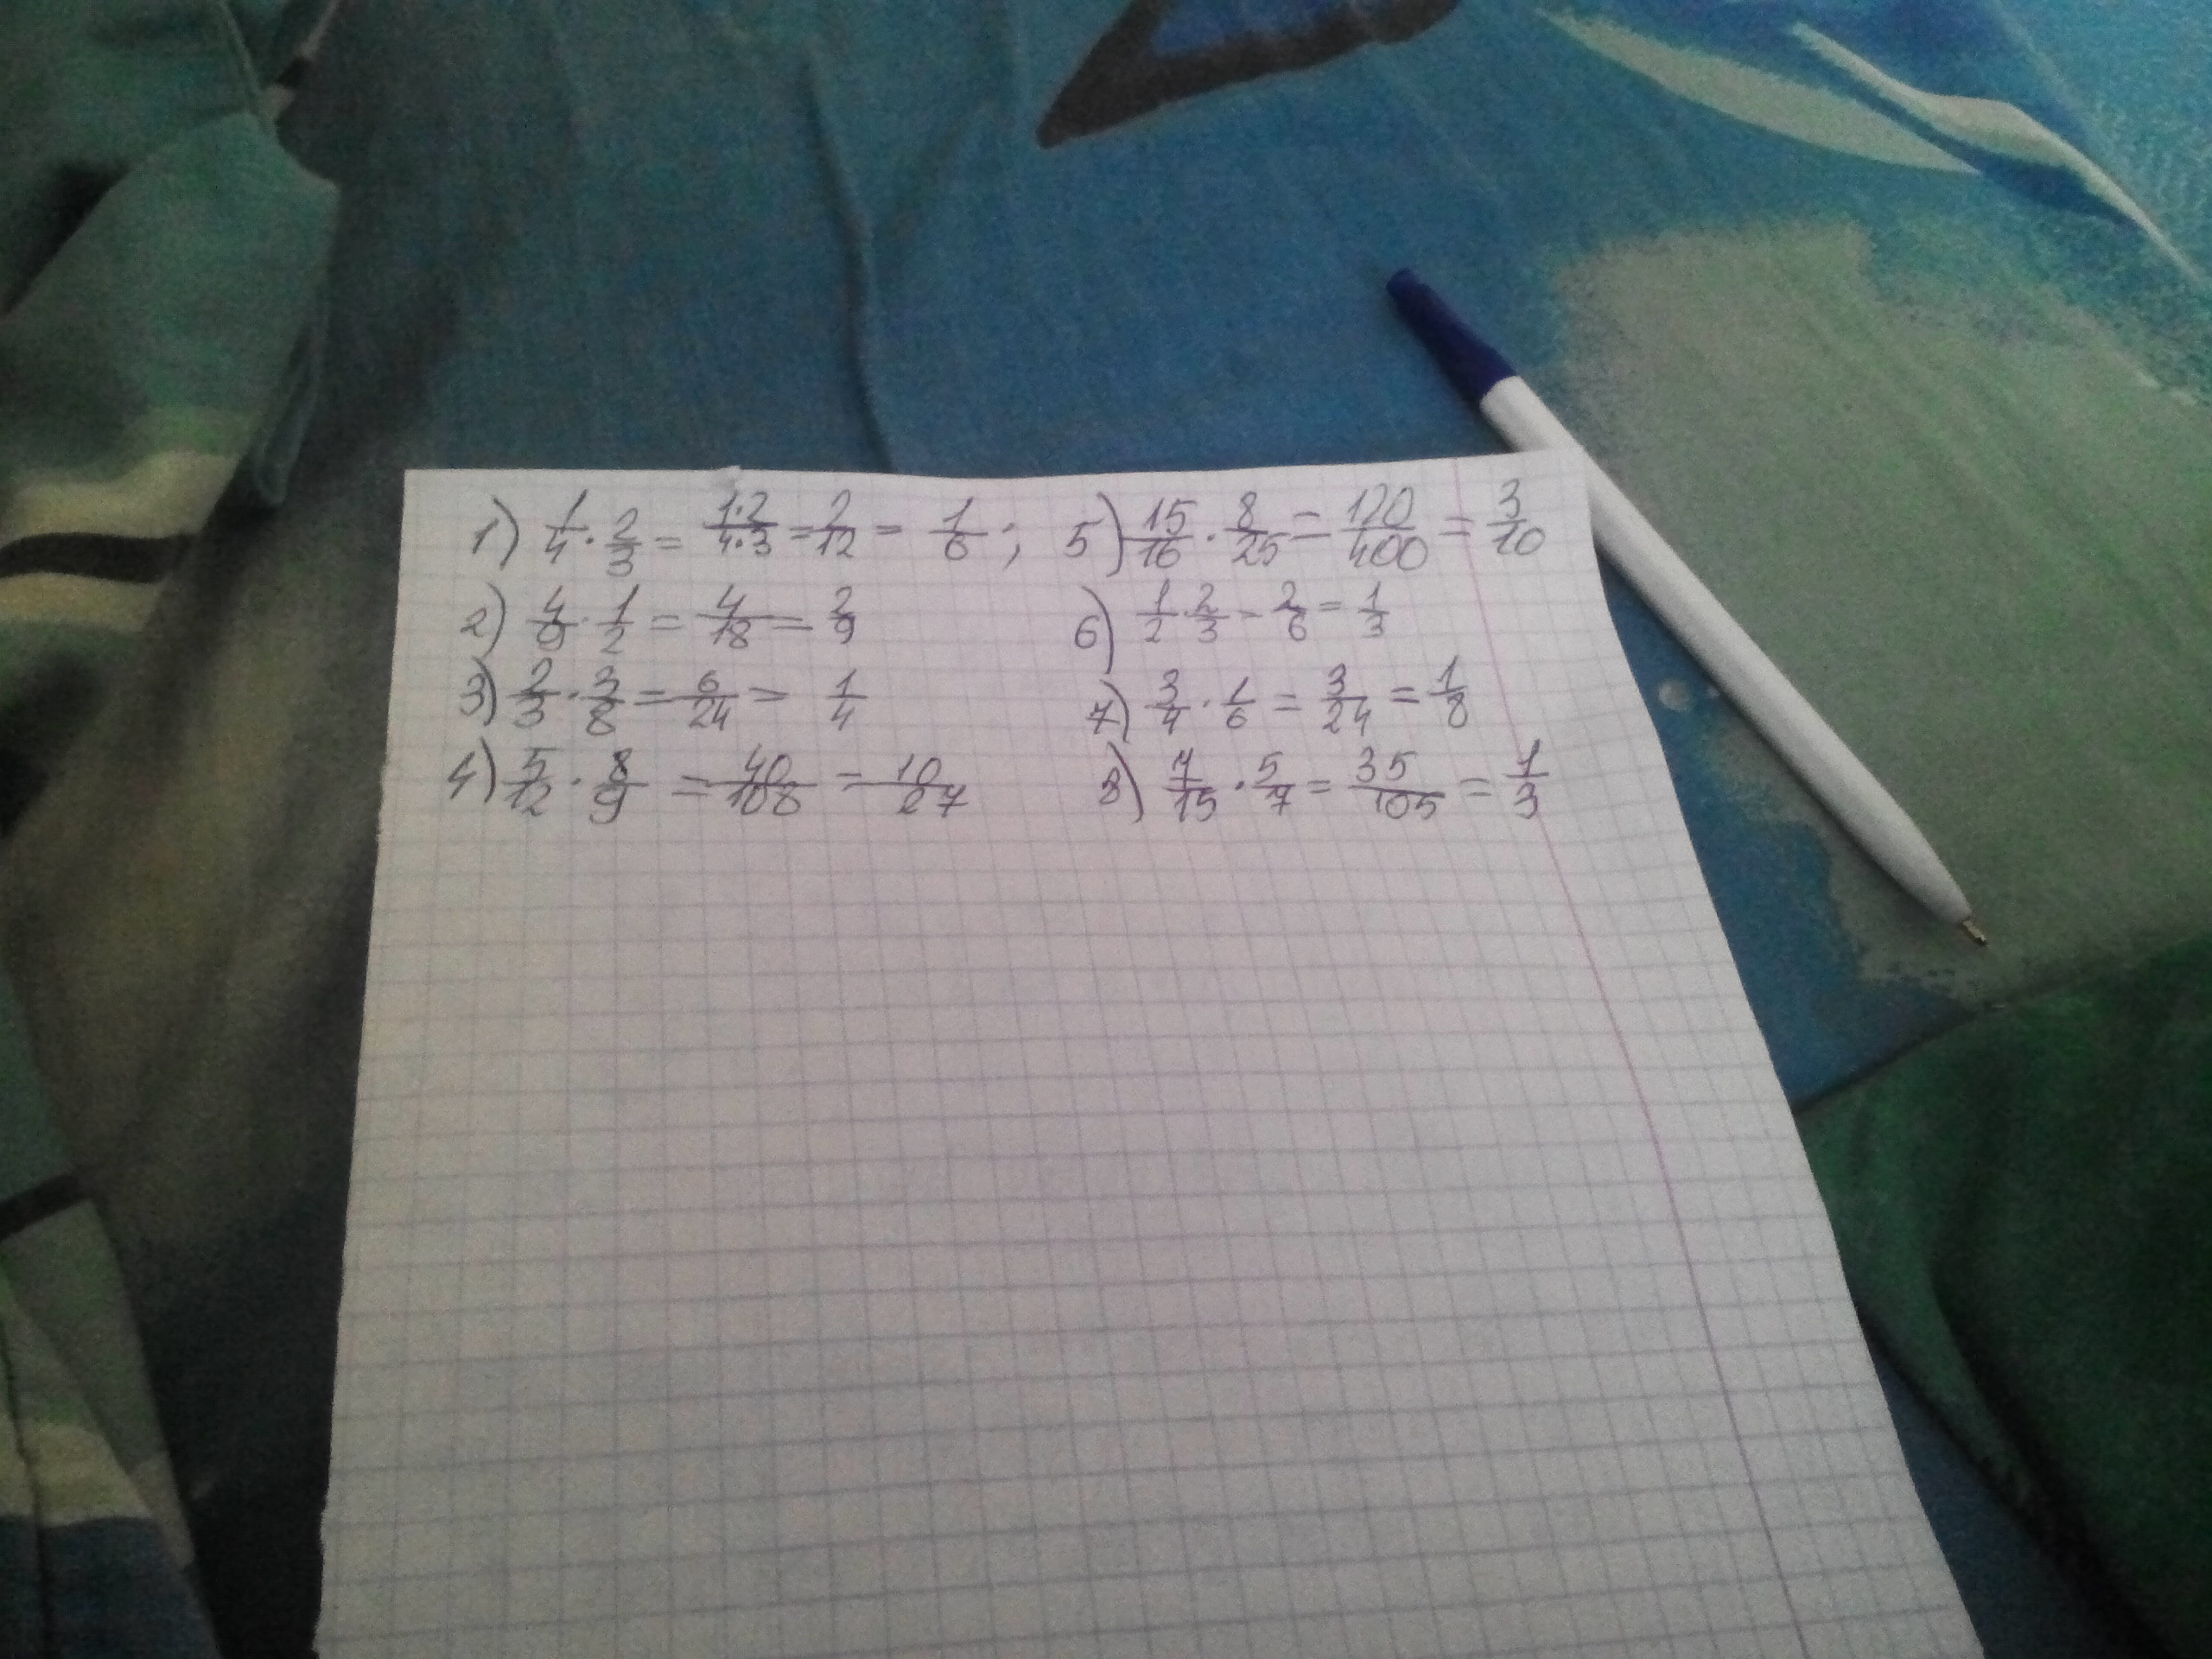 1) 1/4 · 2/3 = 1·2/4·3 = 2/12 = 1/6 ;
2) 4/9 · 1/2 = 4/18 = 2/9
3) 2/3 · 3/8 = 6/24 = 1/4
4) 5/12 · 8/9 = 40/108 = 10/27
5) 15/16 · 8/25 = 120/400 = 3/10
6) 1/2 · 2/3 = 2/6 = 1/3
7) 3/4 · 1/6 = 3/24 = 1/8
8) 7/15 · 5/7 = 35/105 = 1/3